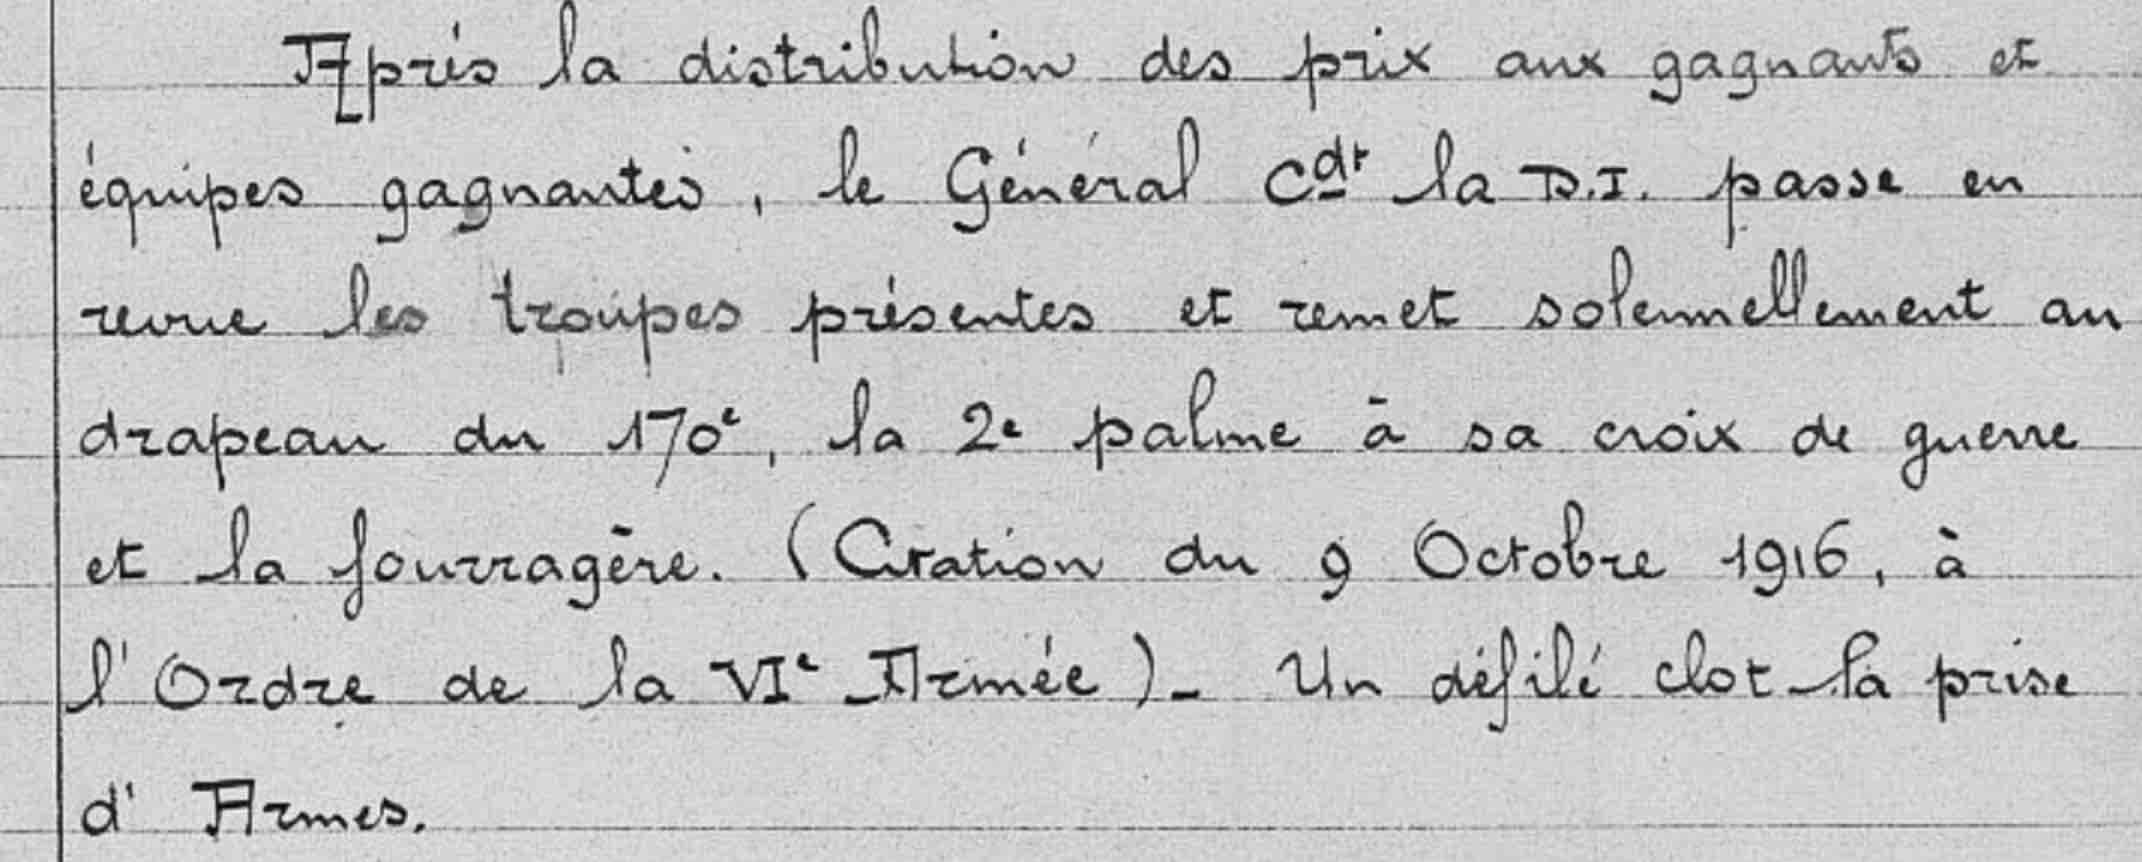 Après la distribution des prix aux gagnants et
équipes gagnantes, le Général Cdt la D.I. passe en
revue les troupes présentes et remet solennellement au
drapeau du 170e, la 2e palme à sa croix de guerre
et la fourragère. (Citation du 9 Octobre 1916, à
l'Ordre de la VIe Armée) - Un défilé clot la prise
d'Armes.